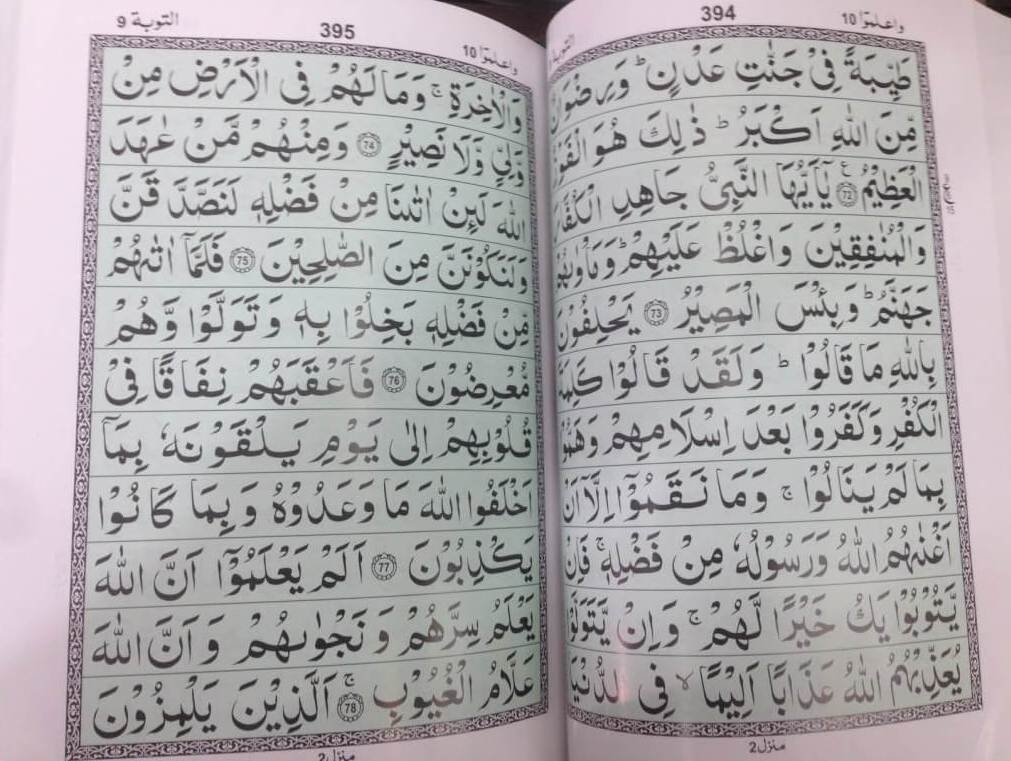 واعلموٓا 10
394
التوبة
طَيِّبَةً فِىْ جَنّٰتِ عَدْنٍ ؕ وَرِضْوَانٌ
مِّنَ اللّٰهِ اَكْبَرُ ؕ ذٰلِكَ هُوَ الْفَوْزُ
الْعَظِيْمُ ۧ 72 يٰۤاَيُّهَا النَّبِىُّ جَاهِدِ الْكُفَّارَ
وَالْمُنٰفِقِيْنَ وَاغْلُظْ عَلَيْهِمْ ؕ وَمَاْوٰىهُمْ
جَهَنَّمُ ؕ وَبِئْسَ الْمَصِيْرُ 73 يَحْلِفُوْنَ
بِاللّٰهِ مَا قَالُوْا ؕ وَلَقَدْ قَالُوْا كَلِمَةَ
الْكُفْرِ وَكَفَرُوْا بَعْدَ اِسْلَامِهِمْ وَهَمُّوْا
بِمَا لَمْ يَنَالُوْا ۚ وَمَا نَقَمُوْۤا اِلَّاۤ اَنْ
اَغْنٰىهُمُ اللّٰهُ وَرَسُوْلُهٗ مِنْ فَضْلِهٖ ۚ فَاِنْ
يَّتُوْبُوْا يَكُ خَيْرًا لَّهُمْ ۚ وَاِنْ يَّتَوَلَّوْا
يُعَذِّبْهُمُ اللّٰهُ عَذَابًا اَلِيْمًا ۙ فِى الدُّنْيَا
منزل 2
واعلموٓا 10
395
التوبة 9
وَالْاٰخِرَةِ ۚ وَمَا لَهُمْ فِى الْاَرْضِ مِنْ
وَّلِىٍّ وَّلَا نَصِيْرٍ 74 وَمِنْهُمْ مَّنْ عٰهَدَ
اللّٰهَ لَئِنْ اٰتٰىنَا مِنْ فَضْلِهٖ لَنَصَّدَّقَنَّ
وَلَنَكُوْنَنَّ مِنَ الصّٰلِحِيْنَ 75 فَلَمَّاۤ اٰتٰىهُمْ
مِّنْ فَضْلِهٖ بَخِلُوْا بِهٖ وَتَوَلَّوْا وَّهُمْ
مُّعْرِضُوْنَ 76 فَاَعْقَبَهُمْ نِفَاقًا فِىْ
قُلُوْبِهِمْ اِلٰى يَوْمِ يَلْقَوْنَهٗ بِمَاۤ
اَخْلَفُوا اللّٰهَ مَا وَعَدُوْهُ وَبِمَا كَانُوْا
يَكْذِبُوْنَ 77 اَلَمْ يَعْلَمُوْۤا اَنَّ اللّٰهَ
يَعْلَمُ سِرَّهُمْ وَنَجْوٰىهُمْ وَاَنَّ اللّٰهَ
عَلَّامُ الْغُيُوْبِ ۚ 78 اَلَّذِيْنَ يَلْمِزُوْنَ
منزل 2